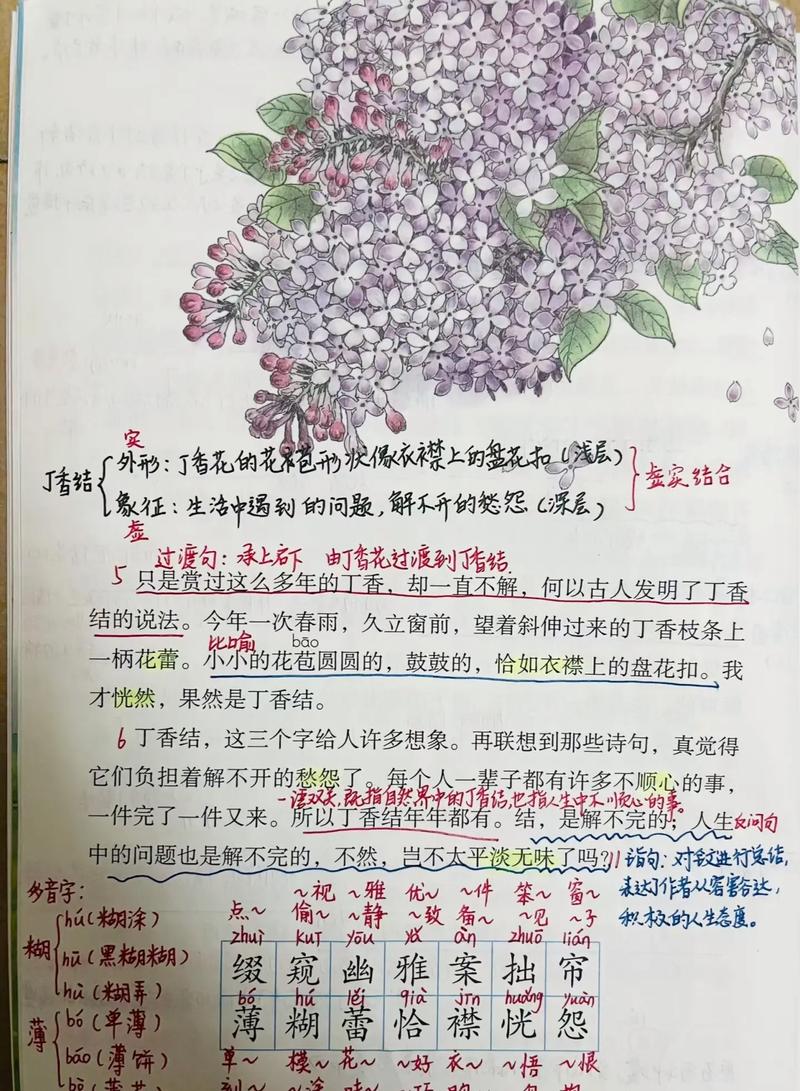 实
丁香结 外形：丁香花的花苞形状像衣襟上的盘花扣（浅层）
象征：生活中遇到的问题，解不开的愁怨（深层）
虚实结合
虚
过渡句：承上启下 由丁香花过渡到丁香结.
5 只是赏过这么多年的丁香，却一直不解，何以古人发明了丁香
结的说法。今年一次春雨，久立窗前，望着斜伸过来的丁香枝条上
比喻 bāo
一柄花蕾。小小的花苞圆圆的，鼓鼓的，恰如衣襟上的盘花扣。我
才恍然，果然是丁香结。
6 丁香结，这三个字给人许多想象。再联想到那些诗句，真觉得
它们负担着解不开的愁怨了。每个人一辈子都有许多不顺心的事，
一语双关，既指自然界中的丁香结，也指人生中不顺心的事。
一件完了一件又来。所以丁香结年年都有。结，是解不完的；人生 反问句
中的问题也是解不完的，不然，岂不太平淡无味了吗？
结句：对全文进行总结，
表达了作者从容豁达，
积极的人生态度。
多音字：
糊 hú（糊涂）
hū（黑糊糊）
hù（糊弄）
薄 bó（单薄）
báo（薄饼）
～视 ～雅 优～ ～件 笨～ 窗～
点～ 偷～ ～静 ～致 备～ ～见 ～子
zhuì kuī yōu yǎ àn zhuō lián
缀 窥 幽 雅 案 拙 帘
bó hú lěi qià jīn huǎng yuàn
薄 糊 蕾 恰 襟 恍 怨
单～ 模～ 花～ ～好 衣～ ～悟 ～恨